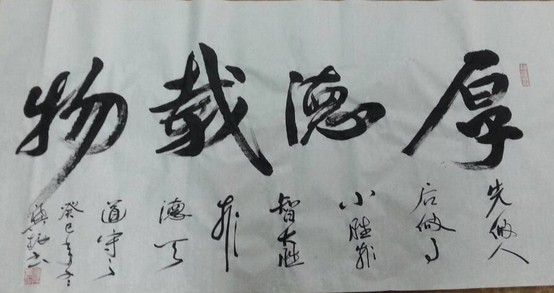 厚德載物
先做人
后做事
小胜靠
智大胜
靠
德天
道
癸巳年冬
书